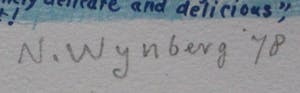 delicate and delicious",
!
N. Wynberg '78